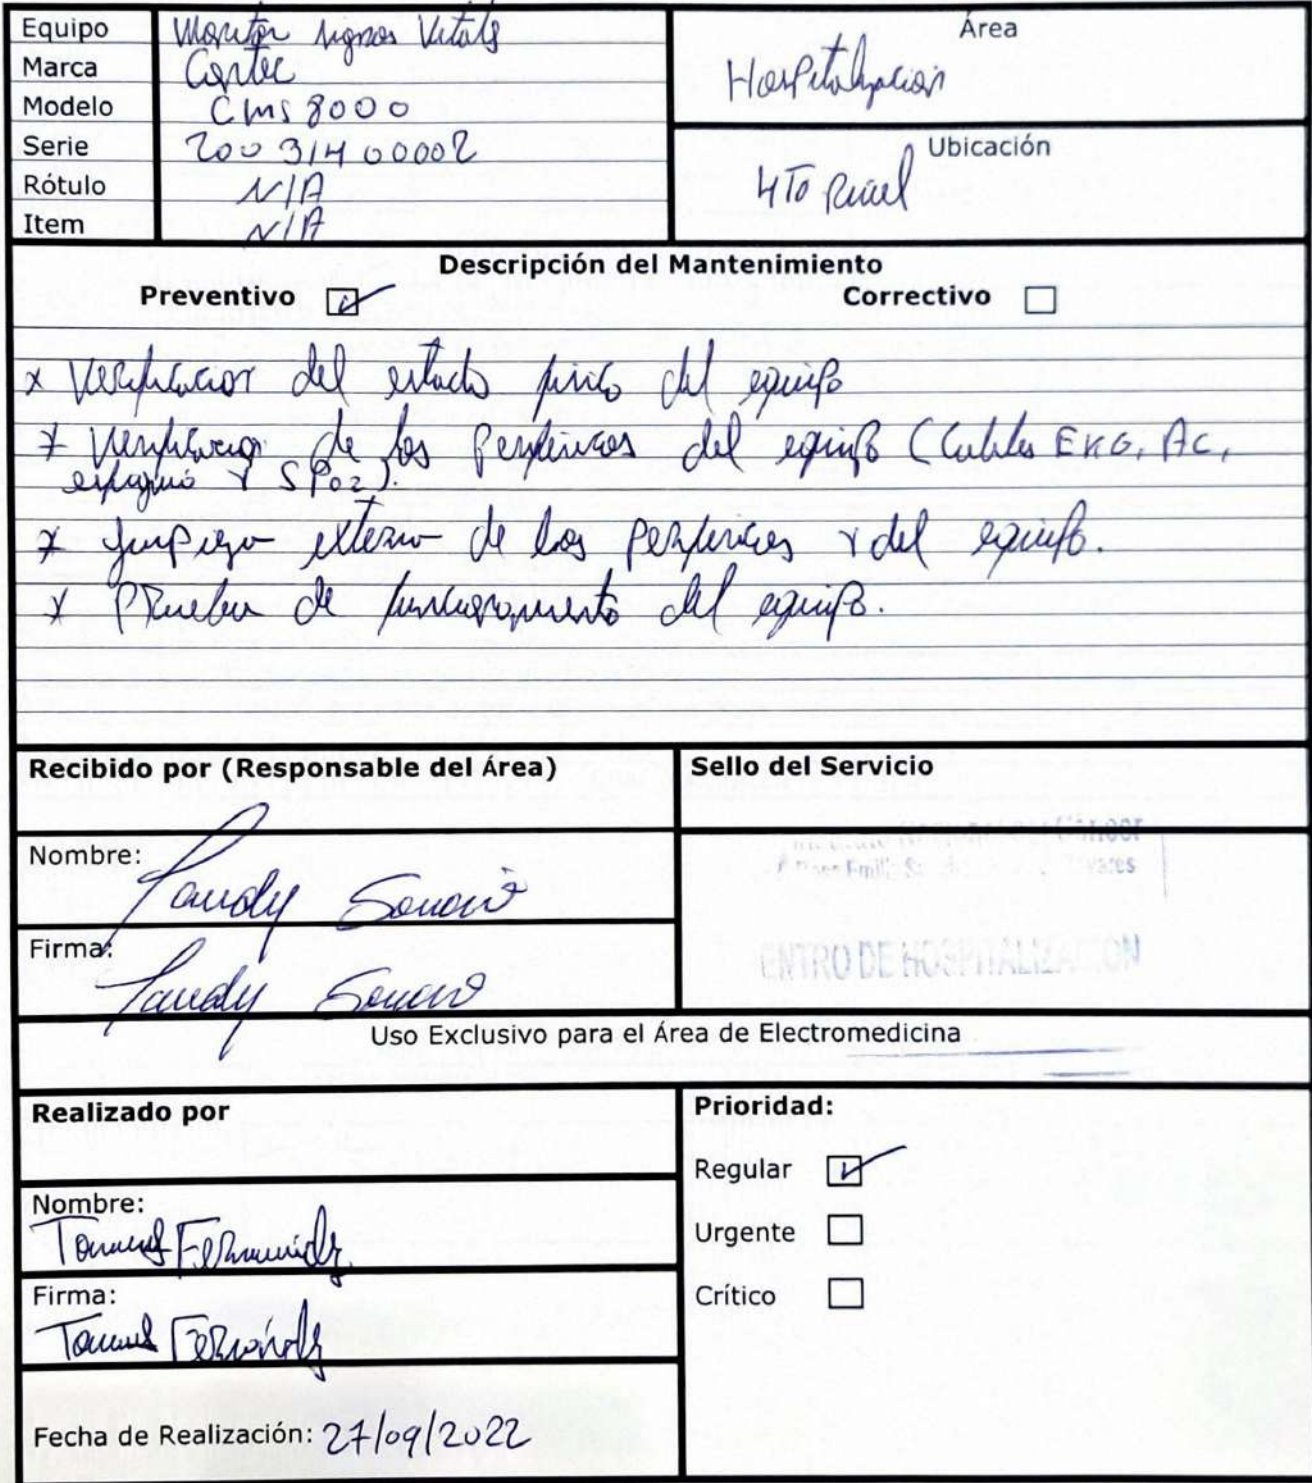 Equipo Monitor signos Vitals
Marca Contec
Modelo CMS 8000
Serie 20031400002
Rótulo N/A
Item N/A
Área
Hospitalización
Ubicación
4To Nivel
Descripción del Mantenimiento
Preventivo Correctivo
x Verificacion del estado fisico del equipo
x Verificacion de los Perifericos del equipo (Cables EKG, AC,
y SPO2).
x Limpieza externo de los perifericos y del equipo.
x Prueba de funcionamiento del equipo.
Recibido por (Responsable del Área) Sello del Servicio
Nombre:
Firma:
ENTRO DE HOSPITALIZACION
Uso Exclusivo para el Área de Electromedicina
Realizado por
Nombre:
Fernández
Firma:
Fernández
Fecha de Realización: 27/09/2022
Prioridad:
Regular
Urgente
Crítico